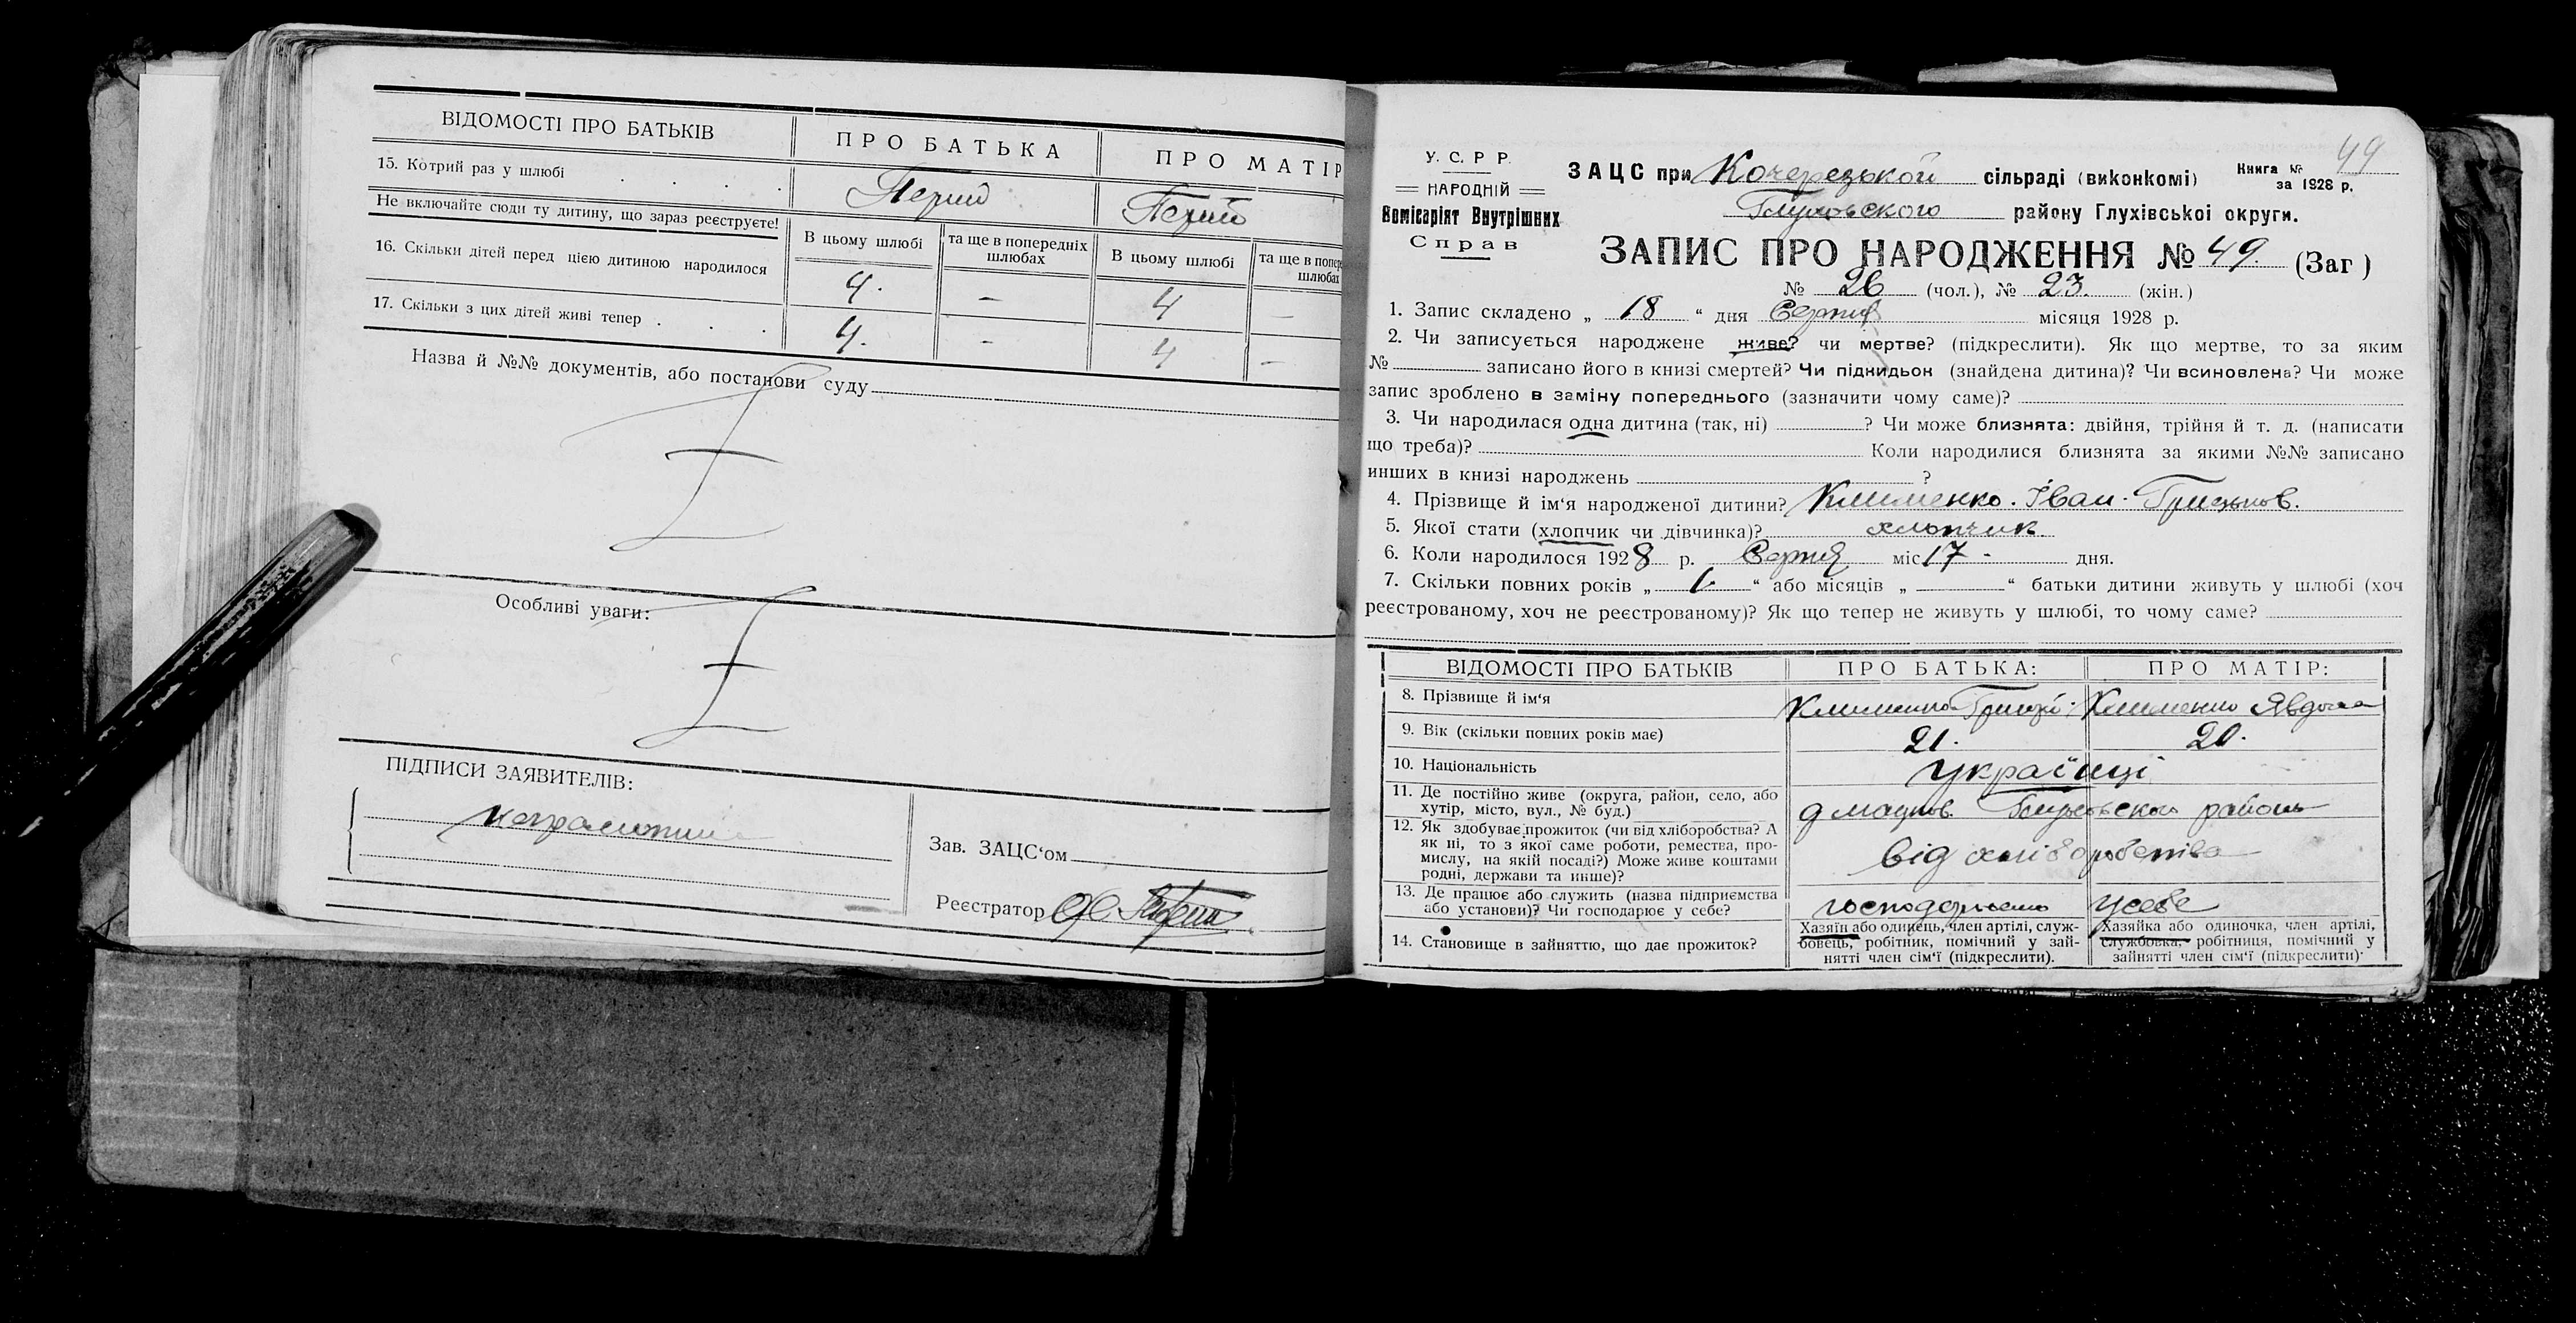 ВІДОМОСТІ ПРО БАТЬКІВ ПРО БАТЬКА ПРО МАТІР
15. Котрий раз у шлюбі . . . .
Не включайте сюди ту дитину, що зараз реєструєте!
В цьому шлюбі та ще в попередніх шлюбах В цьому шлюбі
16. Скільки дітей перед цією дитиною народилося 4. - 4 -
17. Скільки з цих дітей живі тепер . . . 4. - 4 -
Назва й №№ документів, або постанови суду
Особливі уваги:
ПІДПИСИ ЗАЯВИТЕЛІВ:
Зав. ЗАЦС‘ом
Реєстратор
49
У. С. Р. Р.
НАРОДНІЙ
Комісаріят Внутрішних
Справ
ЗАЦС при сільраді (виконкомі)
Книга №
за 1928 р.
району Глухівської округи.
ЗАПИС ПРО НАРОДЖЕННЯ № 49. (Заг)
№ 26 (чол.), № 23. (жін.)
1. Запис складено „ 18 “ дня Серпня місяця 1928 р.
2. Чи записується народжене живе? чи мертве? (підкреслити). Як що мертве, то за яким
№ записано його в книзі смертей? Чи підкидьок (знайдена дитина)? Чи всиновлена? Чи може
запис зроблено в заміну попереднього (зазначити чому саме)?
3. Чи народилася одна дитина (так, ні) ? Чи може близнята: двійня, трійня й т. д. (написати
що треба)? Коли народилися близнята за якими №№ записано
инших в книзі народжень ?
4. Прізвище й ім‘я народженої дитини? Клименко. Іван.
5. Якої стати (хлопчик чи дівчинка)? хлопчик
6. Коли народилося 1928 р. Серпня міс 17 - дня.
7. Скільки повних років „ “ або місяців „ “ батьки дитини живуть у шлюбі (хоч
реєстрованому, хоч не реєстрованому)? Як що тепер не живуть у шлюбі, то чому саме?
ВІДОМОСТІ ПРО БАТЬКІВ ПРО БАТЬКА: ПРО МАТІР:
8. Прізвище й ім‘я Клименко Клименко
9. Вік (скільки повних років має) 21. 20.
10. Національність українці
11. Де постійно живе (округа, район, село, або
хутір, місто, вул., № буд.)
12. Як здобуває прожиток (чи від хліборобства? А
як ні, то з якої саме роботи, ремества, про-
мислу, на якій посаді?) Може живе коштами
родні, держави та инше)?
від хліборобства
13. Де працює або служить (назва підприємства
або установи)? Чи господарює у себе?
усебе
14. Становище в зайняттю, що дає прожиток?
Хазяїн або одинець, член артілі, служ-
бовець, робітник, помічний у зай-
нятті член сім‘ї (підкреслити).
Хазяйка або одиночка, член артілі,
службовка, робітниця, помічний у
зайнятті член сім‘ї (підкреслити).